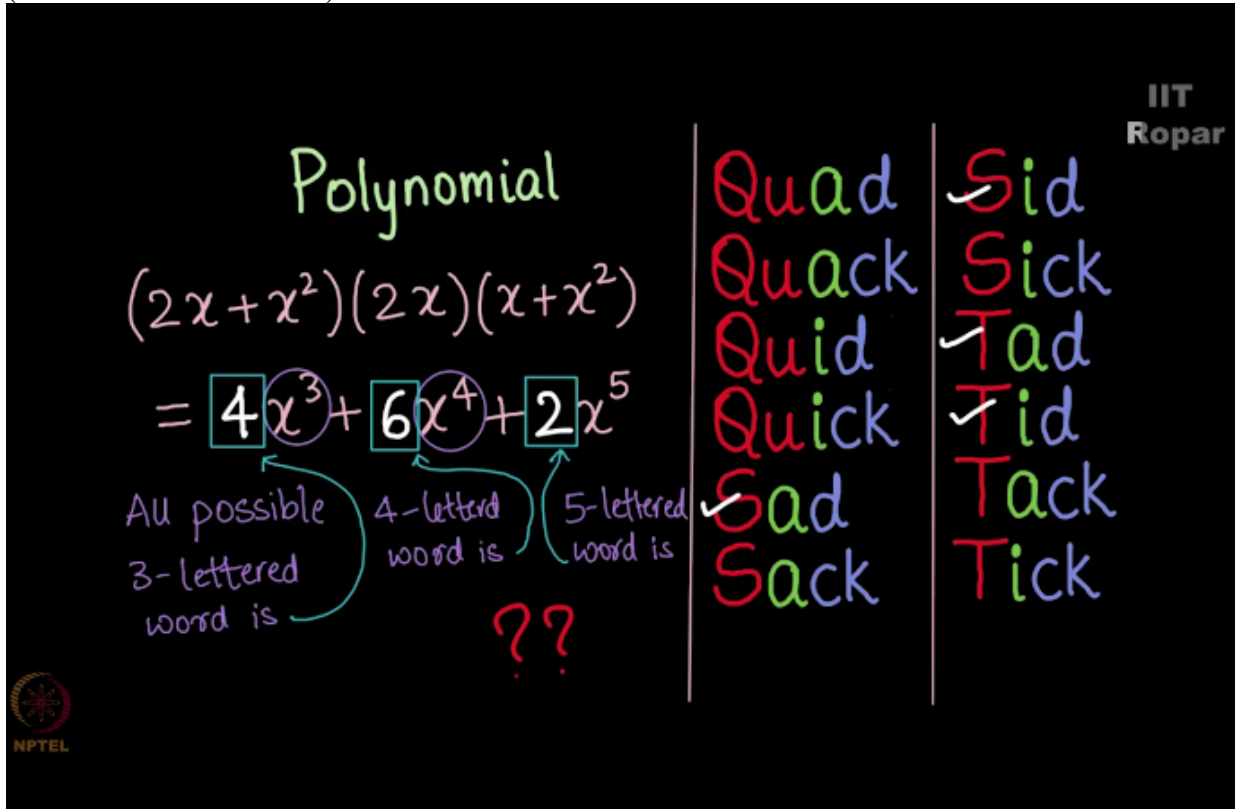 IIT
Ropar
Polynomial
(2x+x²)(2x)(x+x²)
= 4x³+6x⁴+2x⁵
All possible
3-lettered
word is
4-letterd
word is
5-lettered
word is
??
Quad
Quack
Quid
Quick
Sad
Sack
Sid
Sick
Tad
Tid
Tack
Tick
NPTEL